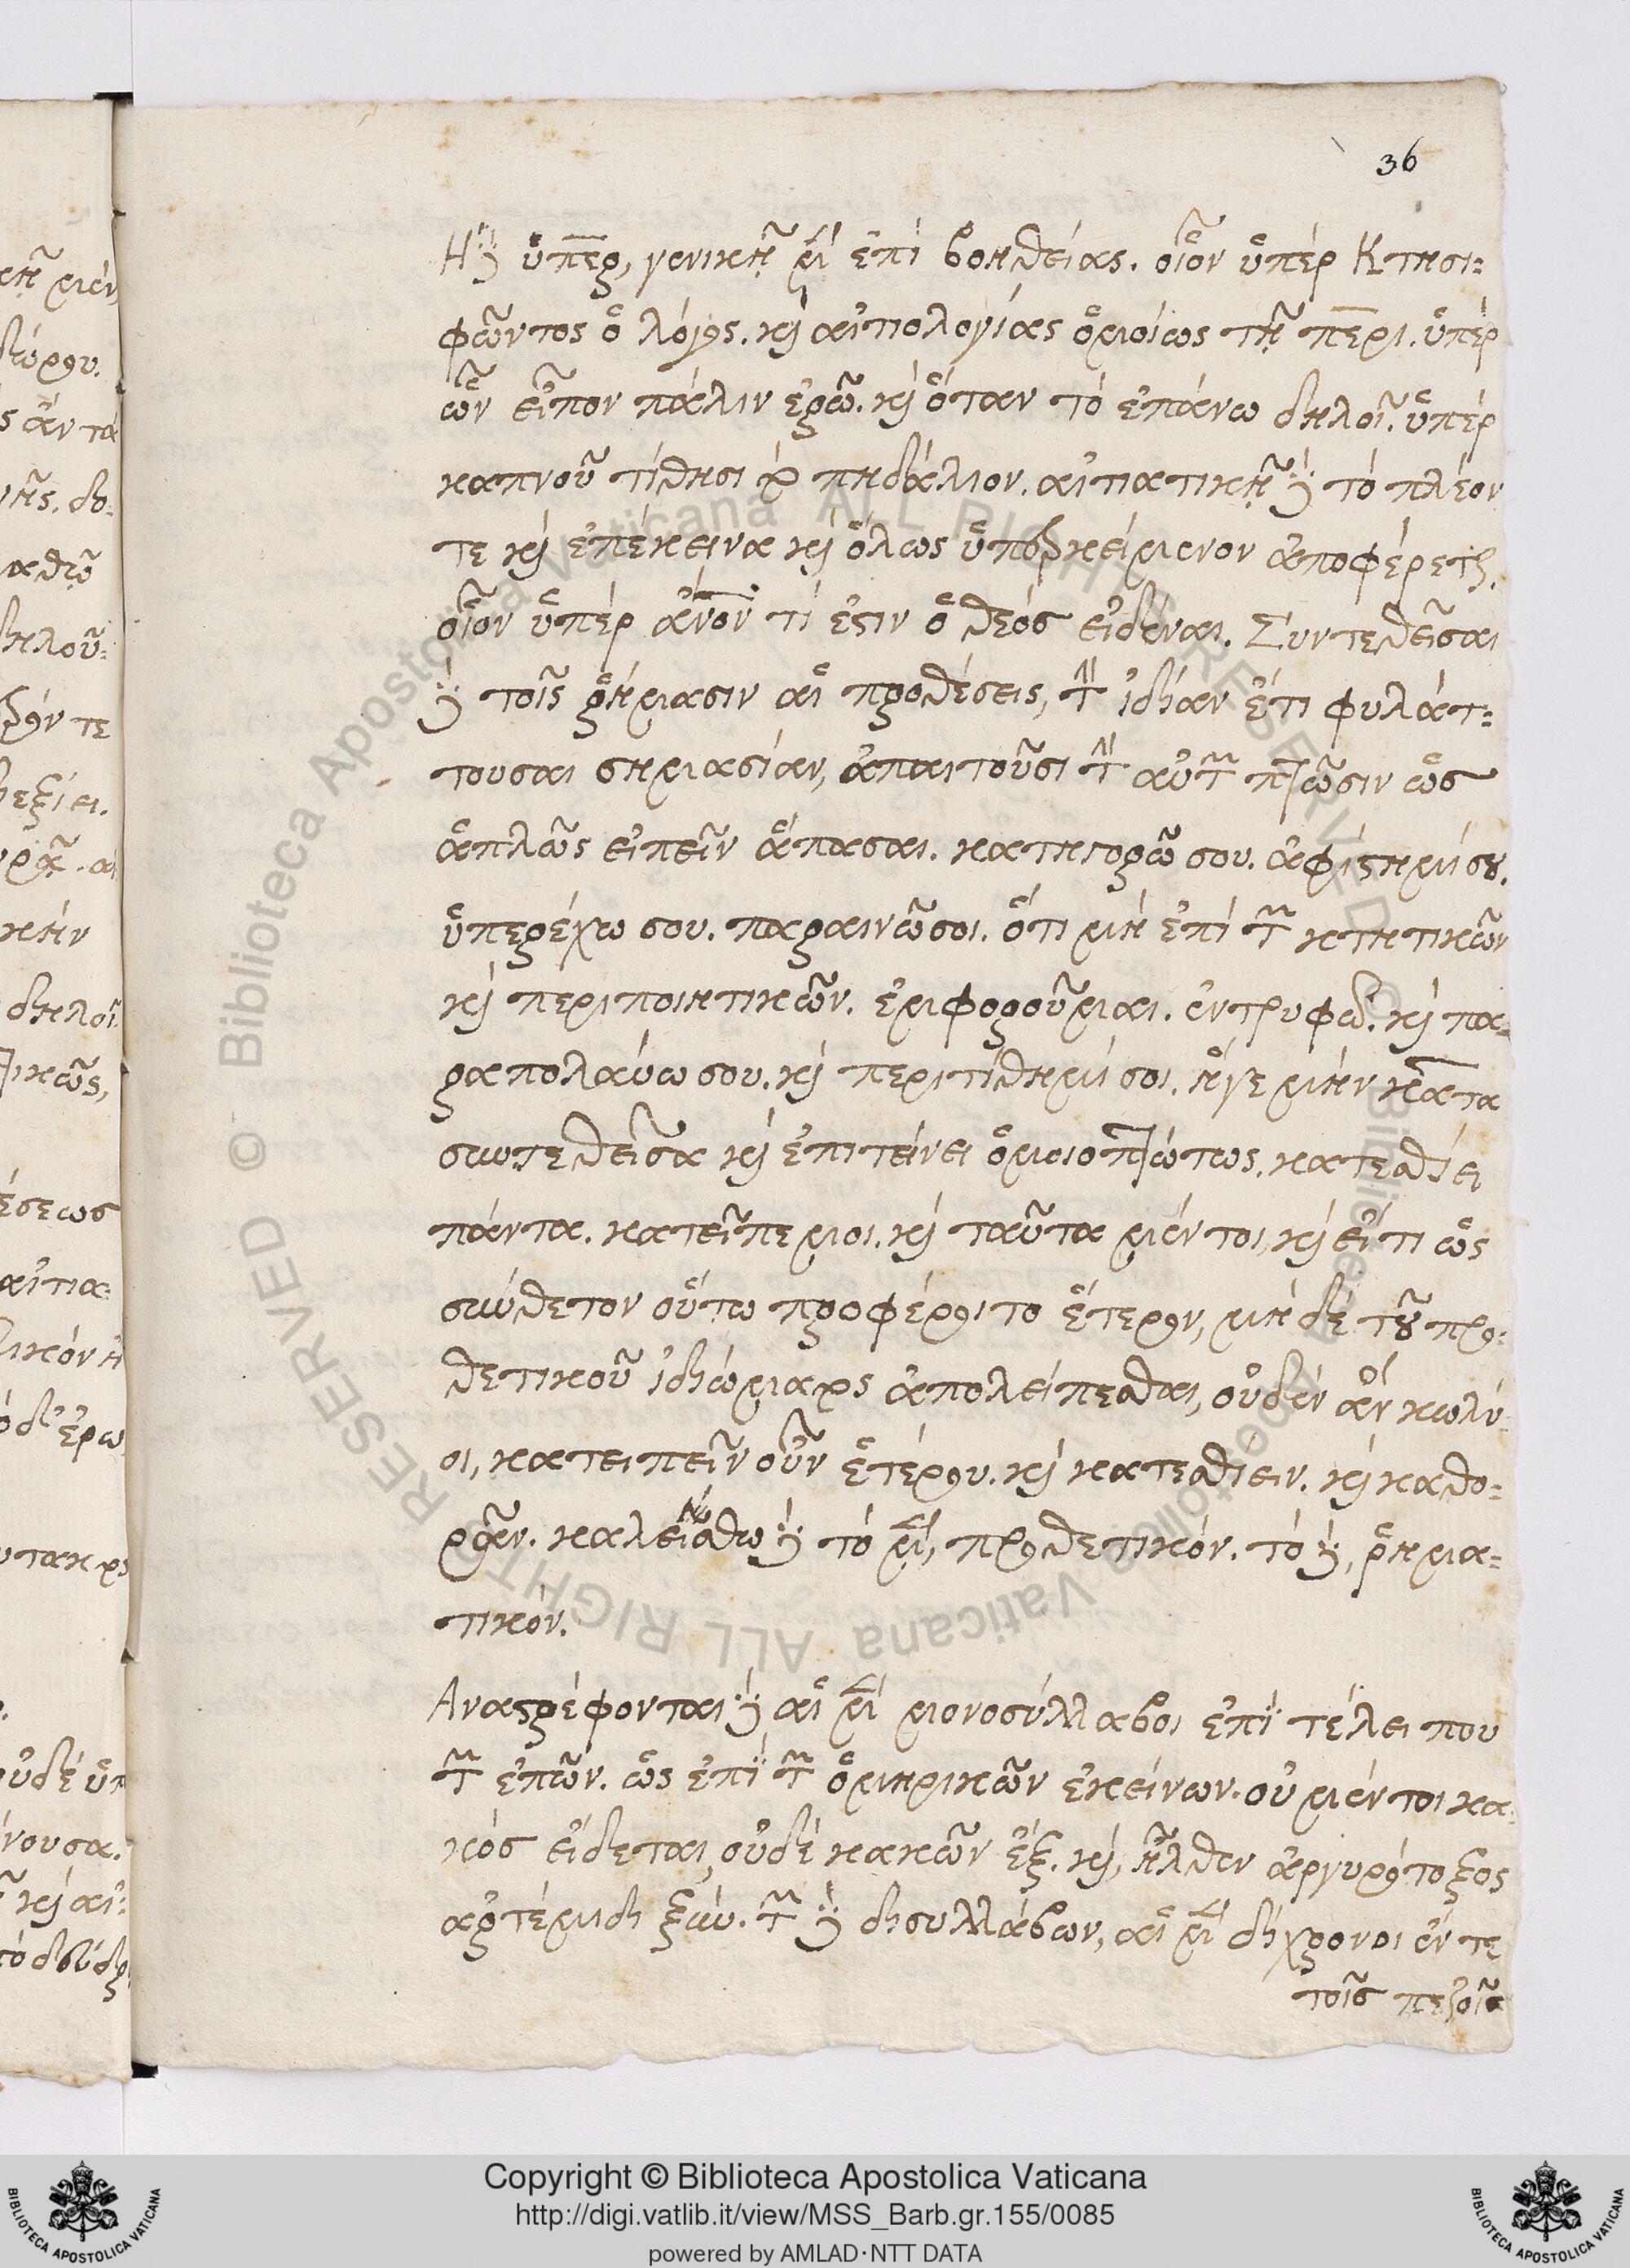 36
Ἡ δὲ ὑπὲρ, γενικῇ μὲν ἐπὶ βοηθείας. οἷον ὑπὲρ Κτησι=
φῶντος ὁ λόγος. καὶ αἰτιολογίας ὁμοίως τῇ περι. ὑπὲρ
ὧν εἶπον πάλιν ἐρῶ. καὶ ὅταν τὸ ἐπάνω δηλοῖ. ὑπὲρ
καπνοῦ τίθησι πηδάλιον. αἰτιατικῇ δὲ τὸ πλέον
τε καὶ ἐπέκεινα καὶ ὅλως ὑπερκείμενον ἀποφέρεται.
οἷον ὑπὲρ ἄνον τί ἐστιν ὁ θεὸς εἰδέναι. Συντεθεῖσαι
δὲ τοῖς ῥήμασιν αἱ προθέσεις, τὴν ἰδίαν ἔτι φυλάτ=
τουσαι σημασίαν, ἀπαιτοῦσι τὴν αὐτὴν πτῶσιν ὡς
ἁπλῶς εἰπεῖν ἅπασαι. κατηγορῶ σου. ἀφίστημί σου.
ὑπερέχω σου. παραινῶ σοι. ὅτι μὴ ἐπὶ τῶν κτητικῶν
καὶ περιποιητικῶν. ἐμφοροῦμαι. ἐντρυφῶ. καὶ πα=
ραπολαύω σου. καὶ περιτίθημί σοι. ἥγε μὴν κατα
συντεθεῖσα καὶ ἐπιτείνει ὁμοιοπτώτως. κατεσθίει
πάντα. κατεῖπε μοι. καὶ ταῦτα μέν τοι, καὶ εἴ τι ὡς
σύνθετον οὕτω προφέροιτο ἕτερον, μὴ δὲ τοῦ προ=
θετικοῦ ἰδιώματος ἀπολείπεσθαι, οὐδὲν ἂν κωλύ=
οι, κατειπεῖν οὖν ἑτέρου. καὶ κατεσθίειν. καὶ καθο=
ρᾶν. καλείσθω δὲ τὸ μὲν, προθετικόν. τὸ δὲ, ῥημα=
τικόν.
Αναστρέφονται δὲ αἱ μὲν μονοσύλλαβοι ἐπὶ τέλει που
τῶν ἐπῶν. ὡς ἐπὶ τῶν ὁμηρικῶν ἐκείνων. οὐ μέν τοι κα=
κὸς εἴδεται, οὐδὲ κακῶν ἔξ. καὶ, ἦλθεν ἀργυρότοξος
ἀρτέμιδι ξύν. τῶν δὲ δισυλλάβων, αἱ μὲν δίχρονοι ἔν τε
τοῖς πεζοῖς
Copyright © Biblioteca Apostolica Vaticana
http://digi.vatlib.it/view/MSS_Barb.gr.155/0085
powered by AMLAD·NTT DATA